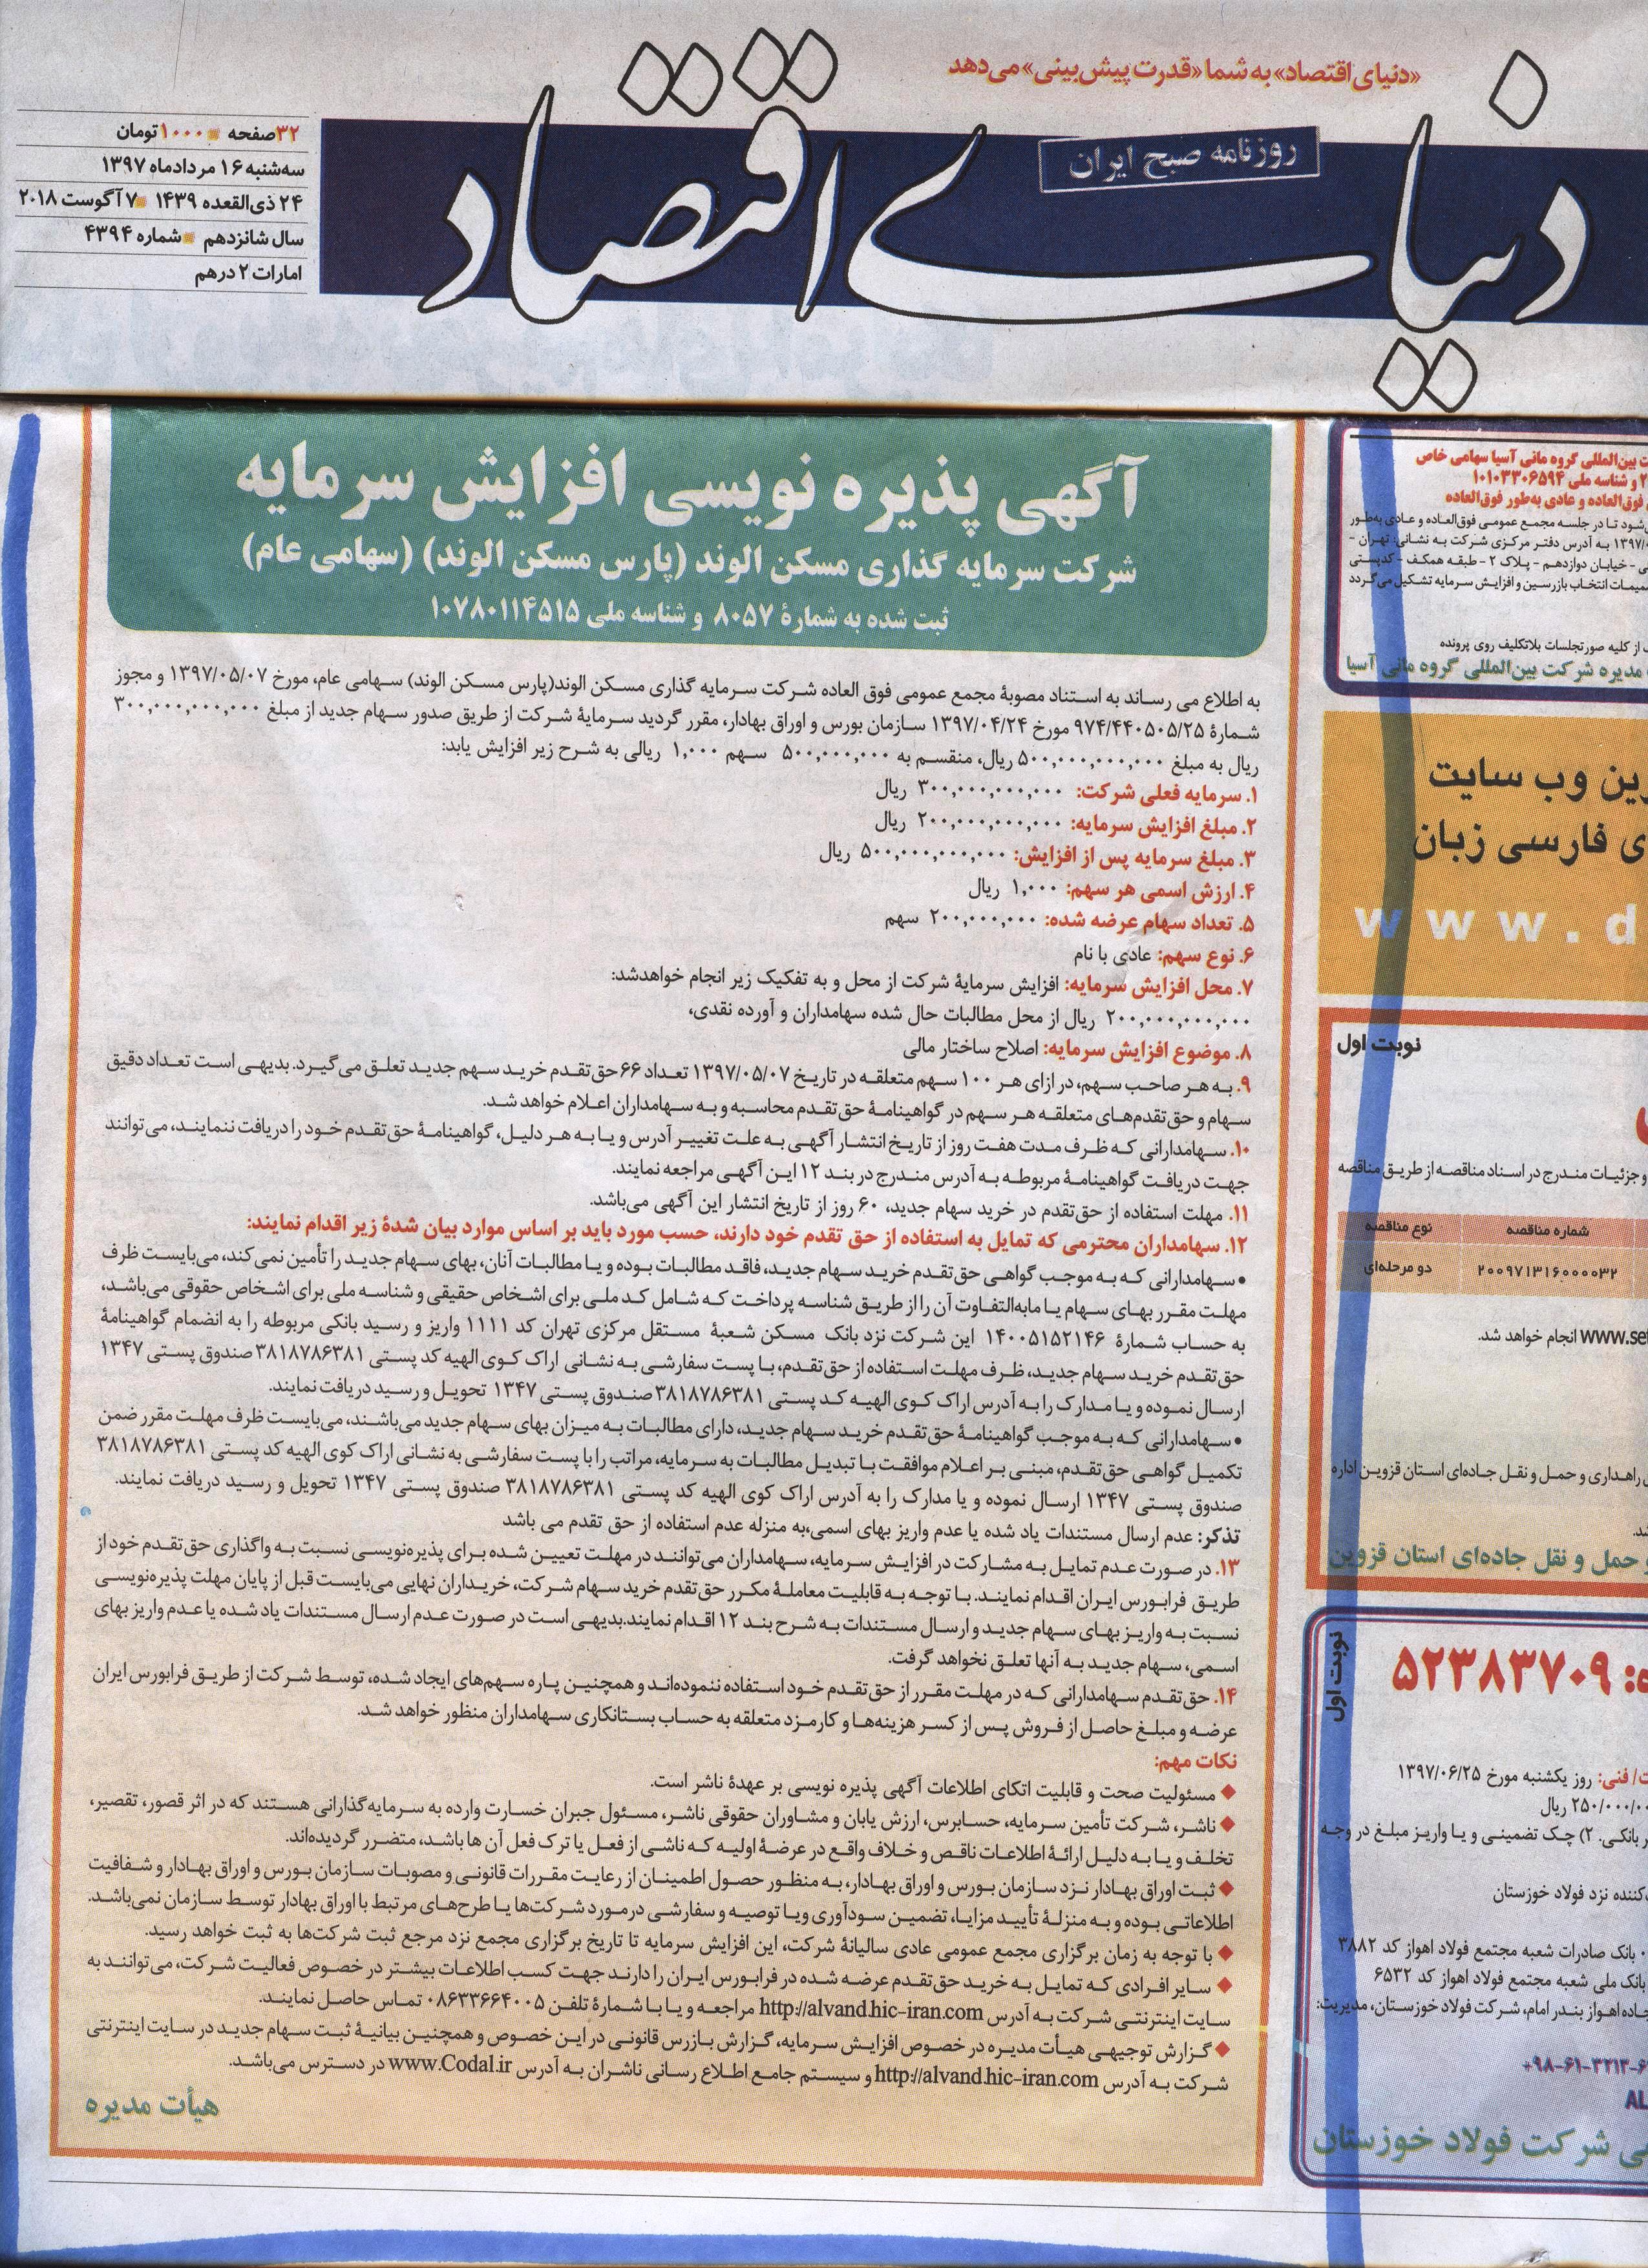 «دنیای اقتصاد» به شما «قدرت پیش‌بینی» می‌دهد
دنیای اقتصاد
روزنامه صبح ایران
۳۲صفحه ۱۰۰۰تومان
سه‌شنبه ۱۶ مردادماه ۱۳۹۷
۲۴ ذی‌القعده ۱۴۳۹ ۷آگوست ۲۰۱۸
سال شانزدهم شماره ۴۳۹۴
امارات ۲ درهم
آگهی پذیره نویسی افزایش سرمایه
شرکت سرمایه گذاری مسکن الوند (پارس مسکن الوند) (سهامی عام)
ثبت شده به شمارۀ ۸۰۵۷ و شناسه ملی ۱۰۷۸۰۱۱۴۵۱۵
به اطلاع می رساند به استناد مصوبۀ مجمع عمومی فوق العاده شرکت سرمایه گذاری مسکن الوند(پارس مسکن الوند) سهامی عام، مورخ ۱۳۹۷/۰۵/۰۷ و مجوز
شمارۀ ۹۷۴/۴۴۰۵۰۵/۲۵ مورخ ۱۳۹۷/۰۴/۲۴ سازمان بورس و اوراق بهادار، مقرر گردید سرمایۀ شرکت از طریق صدور سهام جدید از مبلغ ۳۰۰,۰۰۰,۰۰۰,۰۰۰
ریال به مبلغ ۵۰۰,۰۰۰,۰۰۰,۰۰۰ ریال، منقسم به ۵۰۰,۰۰۰,۰۰۰ سهم ۱,۰۰۰ ریالی به شرح زیر افزایش یابد:
۱. سرمایه فعلی شرکت: ۳۰۰,۰۰۰,۰۰۰,۰۰۰ ریال
۲. مبلغ افزایش سرمایه: ۲۰۰,۰۰۰,۰۰۰,۰۰۰ ریال
۳. مبلغ سرمایه پس از افزایش: ۵۰۰,۰۰۰,۰۰۰,۰۰۰ ریال
۴. ارزش اسمی هر سهم: ۱,۰۰۰ ریال
۵. تعداد سهام عرضه شده: ۲۰۰,۰۰۰,۰۰۰ سهم
۶. نوع سهم: عادی با نام
۷. محل افزایش سرمایه: افزایش سرمایۀ شرکت از محل و به تفکیک زیر انجام خواهدشد:
۲۰۰,۰۰۰,۰۰۰,۰۰۰ ریال از محل مطالبات حال شده سهامداران و آورده نقدی،
۸. موضوع افزایش سرمایه: اصلاح ساختار مالی
۹. به هر صاحب سهم، در ازای هر ۱۰۰ سهم متعلقه در تاریخ ۱۳۹۷/۰۵/۰۷ تعداد ۶۶ حق‌تقدم خرید سهم جدید تعلق می‌گیرد. بدیهی است تعداد دقیق
سهام و حق‌تقدم‌های متعلقه هر سهم در گواهینامۀ حق‌تقدم محاسبه و به سهامداران اعلام خواهد شد.
۱۰. سهامدارانی که ظرف مدت هفت روز از تاریخ انتشار آگهی به علت تغییر آدرس و یا به هر دلیل، گواهینامۀ حق‌تقدم خود را دریافت ننمایند، می‌توانند
جهت دریافت گواهینامۀ مربوطه به آدرس مندرج در بند ۱۲ این آگهی مراجعه نمایند.
۱۱. مهلت استفاده از حق‌تقدم در خرید سهام جدید، ۶۰ روز از تاریخ انتشار این آگهی می‌باشد.
۱۲. سهامداران محترمی که تمایل به استفاده از حق تقدم خود دارند، حسب مورد باید بر اساس موارد بیان شدۀ زیر اقدام نمایند:
• سهامدارانی که به موجب گواهی حق‌تقدم خرید سهام جدید، فاقد مطالبات بوده و یا مطالبات آنان، بهای سهام جدید را تأمین نمی‌کند، می‌بایست ظرف
مهلت مقرر بهای سهام یا مابه‌التفاوت آن را از طریق شناسه پرداخت که شامل کد ملی برای اشخاص حقیقی و شناسه ملی برای اشخاص حقوقی می‌باشد،
به حساب شمارۀ ۱۴۰۰۵۱۵۲۱۴۶ این شرکت نزد بانک مسکن شعبۀ مستقل مرکزی تهران کد ۱۱۱۱ واریز و رسید بانکی مربوطه را به انضمام گواهینامۀ
حق‌تقدم خرید سهام جدید، ظرف مهلت استفاده از حق‌تقدم، با پست سفارشی به نشانی اراک کوی الهیه کد پستی ۳۸۱۸۷۸۶۳۸۱ صندوق پستی ۱۳۴۷
ارسال نموده و یا مدارک را به آدرس اراک کوی الهیه کد پستی ۳۸۱۸۷۸۶۳۸۱ صندوق پستی ۱۳۴۷ تحویل و رسید دریافت نمایند.
• سهامدارانی که به موجب گواهینامۀ حق‌تقدم خرید سهام جدید، دارای مطالبات به میزان بهای سهام جدید می‌باشند، می‌بایست ظرف مهلت مقرر ضمن
تکمیل گواهی حق‌تقدم، مبنی بر اعلام موافقت با تبدیل مطالبات به سرمایه، مراتب را با پست سفارشی به نشانی اراک کوی الهیه کد پستی ۳۸۱۸۷۸۶۳۸۱
صندوق پستی ۱۳۴۷ ارسال نموده و یا مدارک را به آدرس اراک کوی الهیه کد پستی ۳۸۱۸۷۸۶۳۸۱ صندوق پستی ۱۳۴۷ تحویل و رسید دریافت نمایند.
تذکر: عدم ارسال مستندات یاد شده یا عدم واریز بهای اسمی،به منزله عدم استفاده از حق تقدم می باشد
۱۳. در صورت عدم تمایل به مشارکت در افزایش سرمایه، سهامداران می‌توانند در مهلت تعیین شده برای پذیره‌نویسی نسبت به واگذاری حق‌تقدم خود از
طریق فرابورس ایران اقدام نمایند. با توجه به قابلیت معاملۀ مکرر حق‌تقدم خرید سهام شرکت، خریداران نهایی می‌بایست قبل از پایان مهلت پذیره‌نویسی
نسبت به واریز بهای سهام جدید و ارسال مستندات به شرح بند ۱۲ اقدام نمایند.بدیهی است در صورت عدم ارسال مستندات یاد شده یا عدم واریز بهای
اسمی، سهام جدید به آنها تعلق نخواهد گرفت.
۱۴. حق‌تقدم سهامدارانی که در مهلت مقرر از حق‌تقدم خود استفاده ننموده‌اند و همچنین پاره سهم‌های ایجاد شده، توسط شرکت از طریق فرابورس ایران
عرضه و مبلغ حاصل از فروش پس از کسر هزینه‌ها و کارمزد متعلقه به حساب بستانکاری سهامداران منظور خواهد شد.
نکات مهم:
◆ مسئولیت صحت و قابلیت اتکای اطلاعات آگهی پذیره نویسی بر عهدۀ ناشر است.
◆ ناشر، شرکت تأمین سرمایه، حسابرس، ارزش یابان و مشاوران حقوقی ناشر، مسئول جبران خسارت وارده به سرمایه‌گذارانی هستند که در اثر قصور، تقصیر،
تخلف و یا به دلیل ارائۀ اطلاعات ناقص و خلاف واقع در عرضۀ اولیه که ناشی از فعل یا ترک فعل آن ها باشد، متضرر گردیده‌اند.
◆ ثبت اوراق بهادار نزد سازمان بورس و اوراق بهادار، به منظور حصول اطمینان از رعایت مقررات قانونی و مصوبات سازمان بورس و اوراق بهادار و شفافیت
اطلاعاتی بوده و به منزلۀ تأیید مزایا، تضمین سودآوری ویا توصیه و سفارشی درمورد شرکت‌ها یا طرح‌های مرتبط با اوراق بهادار توسط سازمان نمی‌باشد.
◆ با توجه به زمان برگزاری مجمع عمومی عادی سالیانۀ شرکت، این افزایش سرمایه تا تاریخ برگزاری مجمع نزد مرجع ثبت شرکت‌ها به ثبت خواهد رسید.
◆ سایر افرادی که تمایل به خرید حق‌تقدم عرضه شده در فرابورس ایران را دارند جهت کسب اطلاعات بیشتر در خصوص فعالیت شرکت، می‌توانند به
سایت اینترنتی شرکت به آدرس http://alvand.hic-iran.com مراجعه و یا با شمارۀ تلفن ۰۸۶۳۳۶۶۴۰۰۵ تماس حاصل نمایند.
◆ گزارش توجیهی هیأت مدیره در خصوص افزایش سرمایه، گزارش بازرس قانونی در این خصوص و همچنین بیانیۀ ثبت سهام جدید در سایت اینترنتی
شرکت به آدرس http://alvand.hic-iran.com و سیستم جامع اطلاع رسانی ناشران به آدرس www.Codal.ir در دسترس می‌باشد.
هیأت مدیره
ت بین‌المللی گروه مانی آسیا سهامی خاص
۲ و شناسه ملی ۱۰۱۰۳۳۰۶۵۹۴
فوق‌العاده و عادی به‌طور فوق‌العاده
شود تا در جلسه مجمع عمومی فوق‌العاده و عادی به‌طور
۱۳۹۷/ به آدرس دفتر مرکزی شرکت به نشانی: تهران -
ی - خیابان دوازدهم - پلاک ۲ - طبقه همکف - کدپستی
میمات انتخاب بازرسین و افزایش سرمایه تشکیل می‌گردد
از کلیه صورتجلسات بلاتکلیف روی پرونده
مدیره شرکت بین‌المللی گروه مانی آسیا
رین وب سایت
ی فارسی زبان
www.d
نوبت اول
و جزئیات مندرج در اسناد مناقصه از طریق مناقصه
شماره مناقصه نوع مناقصه
۲۰۰۹۷۱۳۱۶۰۰۰۰۳۲ دو مرحله‌ای
www.se انجام خواهد شد.
راهداری و حمل و نقل جاده‌ای استان قزوین اداره
شد.
و حمل و نقل جاده‌ای استان قزوین
نوبت اول
ه: ۵۲۳۸۳۷۰۹
ت/ فنی: روز یکشنبه مورخ ۱۳۹۷/۰۶/۲۵
۲۵۰/۰۰۰/۰۰ ریال
ر بانکی. ۲) چک تضمینی و یا واریز مبلغ در وجه
کننده نزد فولاد خوزستان
۰ بانک صادرات شعبه مجتمع فولاد اهواز کد ۳۸۸۲
بانک ملی شعبه مجتمع فولاد اهواز کد ۶۵۳۲
جاده اهواز بندر امام، شرکت فولاد خوزستان، مدیریت:
+۹۸-۶۱-۳۲۱۳-۶
AL
ی شرکت فولاد خوزستان